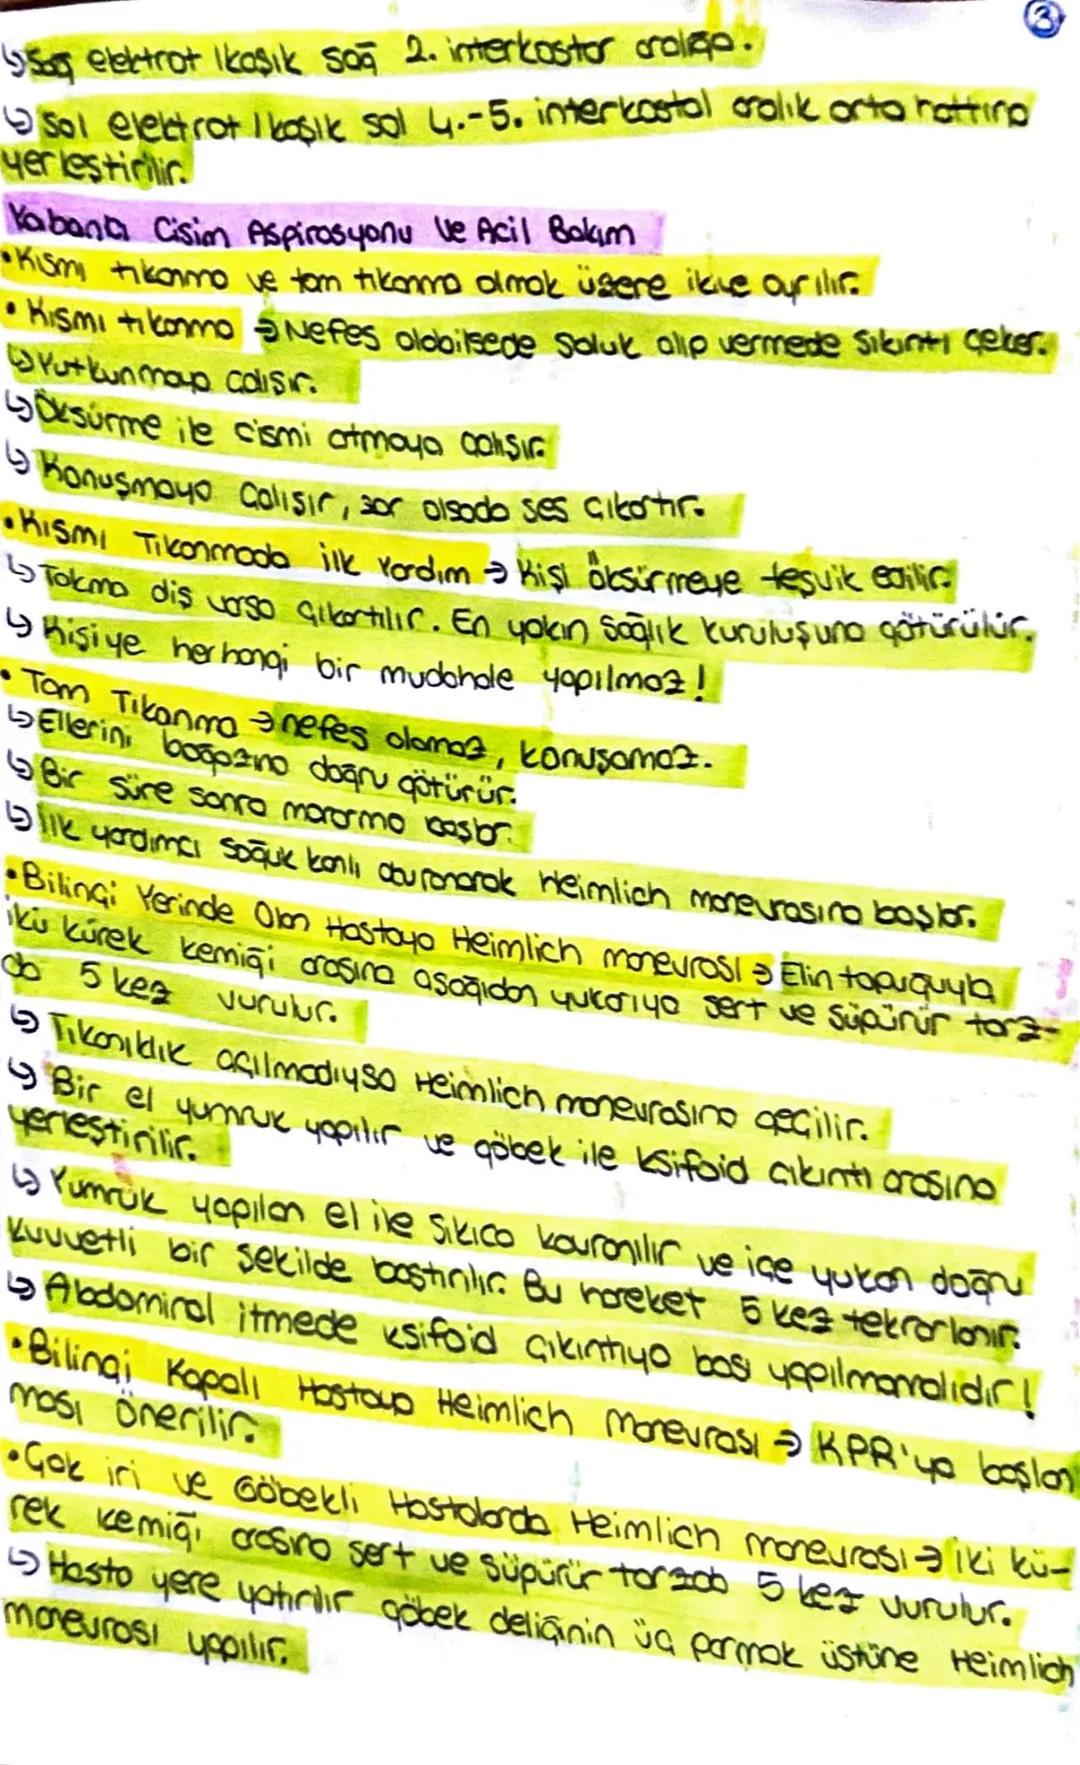 3
↳ Sağ elektrot / kaşık sağ 2. interkostar aralığa.
↳ Sol elektrot / kaşık sol 4.-5. interkostal aralık orta hattına
yerleştirilir.
Yabancı Cisim Aspirasyonu ve Acil Bakım
• Kısmı tıkanma ve tam tıkanma olmak üzere ikiye ayrılır.
• Kısmı tıkanma → Nefes alabilsede soluk alıp vermede sıkıntı çeker.
↳ Yutkunmaya çalışır.
↳ Öksürme ile cismi atmaya çalışır.
↳ Konuşmaya çalışır, zor olsada ses çıkartır.
• Kısmı Tıkanmada ilk Yardım → Kişi öksürmeye teşvik edilir.
↳ Takma diş varsa çıkartılır. En yakın Sağlık kuruluşuna götürülür.
↳ Kişiye herhangi bir mudahale yapılmaz!
• Tam Tıkanma → nefes alamaz, konuşamaz.
↳ Ellerini boğazına doğru götürür.
↳ Bir süre sonra morarma başlar.
↳ İlk yardımcı soğuk kanlı davranarak Heimlich manevrasına başlar.
• Bilinçi Yerinde Olan Hastaya Heimlich manevrası → Elin topuğuyla
iki kürek kemiği arasına aşağıdan yukarıya sert ve süpürür tarz-
da 5 kez vurulur.
↳ Tıkanıklık açılmadıysa Heimlich manevrasına geçilir.
↳ Bir el yumruk yapılır ve göbek ile ksifoid çıkıntı arasına
yerleştirilir.
↳ Yumruk yapılan el ile sıkıca kavranılır ve içe yukarı doğru
kuvvetli bir şekilde bastırılır. Bu hareket 5 kez tekrarlanır.
↳ Abdominal itmede ksifoid çıkıntıya bası yapılmamalıdır!
• Bilinçi Kapalı Hastaya Heimlich Manevrası → KPR'ya başlan
ması önerilir.
• Çok iri ve Göbekli Hastalarda Heimlich manevrası → iki kü-
rek kemiği arasına sert ve süpürür tarzda 5 kez vurulur.
↳ Hasta yere yatırılır göbek deliğinin üç parmak üstüne Heimlich
manevrası yapılır.